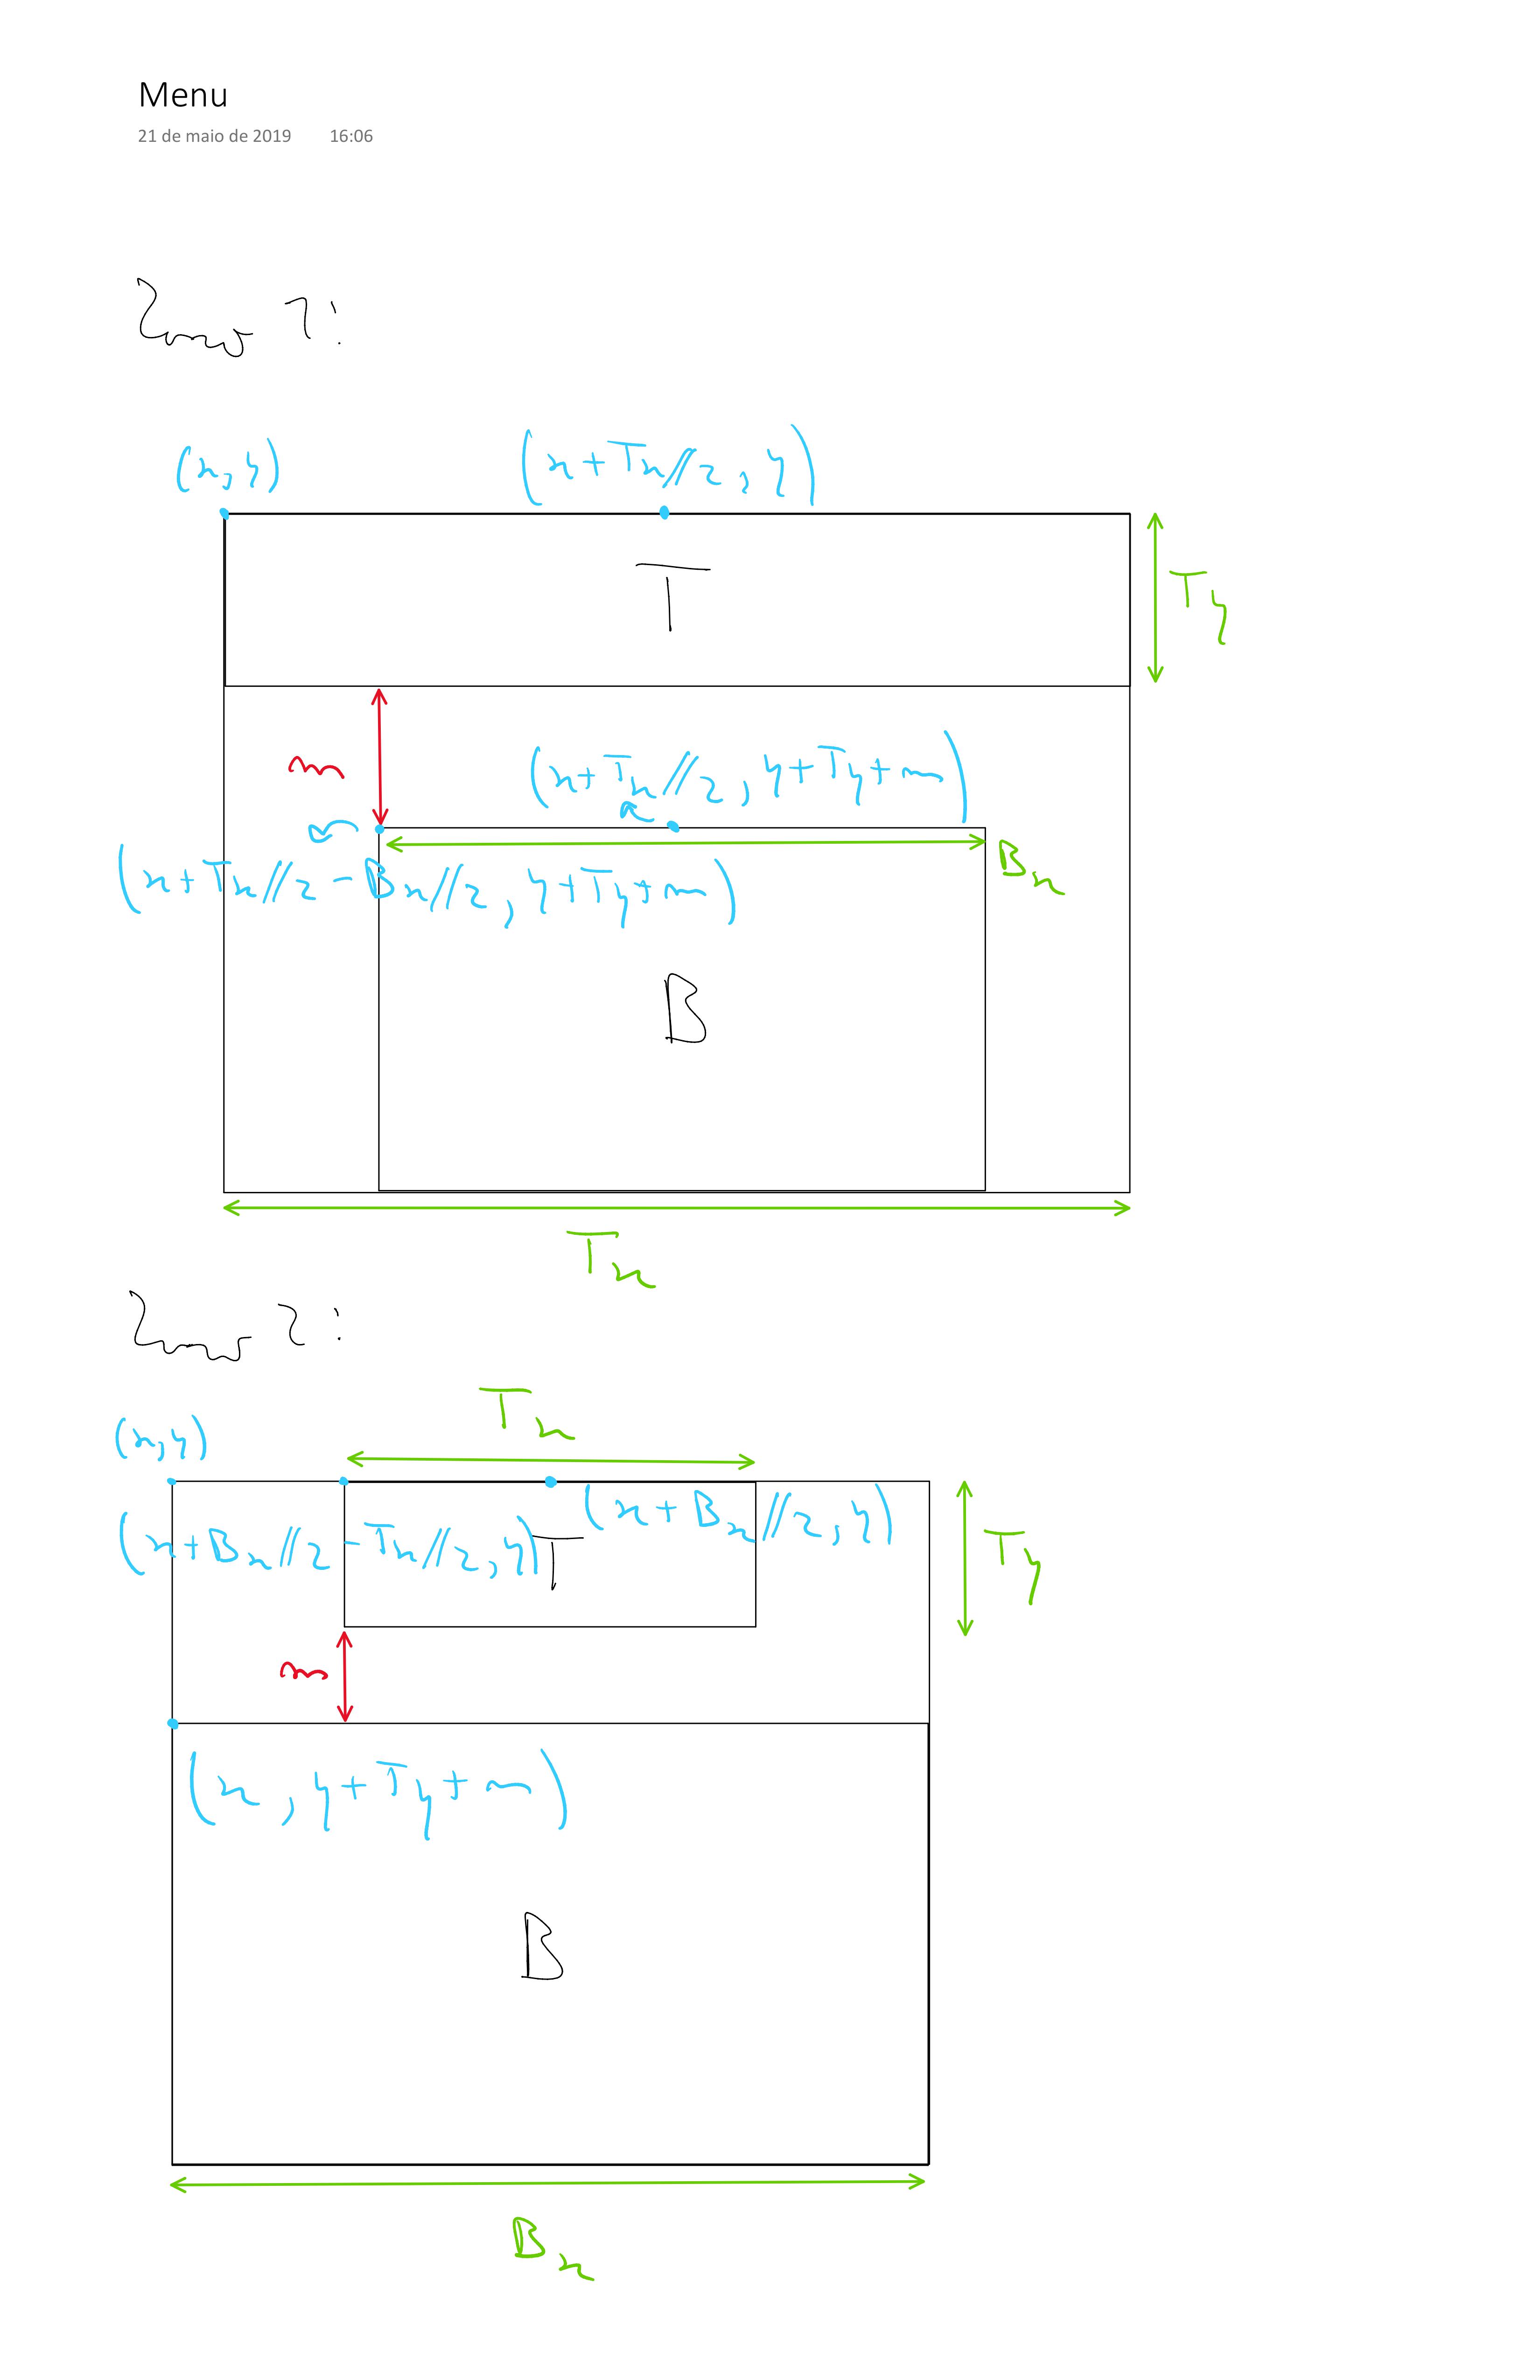 Menu
21 de maio de 2019 16:06
1:
(x,y)
(x+Tx//2,y)
T
Ty
m
(x+Tx//2,y+Ty+m)
Bx
(x+Tx//2-Bx//2,y+Ty+m)
B
Tx
2:
Tx
(x,y)
(x+Bx//2,y)
(x+Bx//2-Tx//2,y)
T
Ty
m
(x,y+Ty+m)
B
Bx